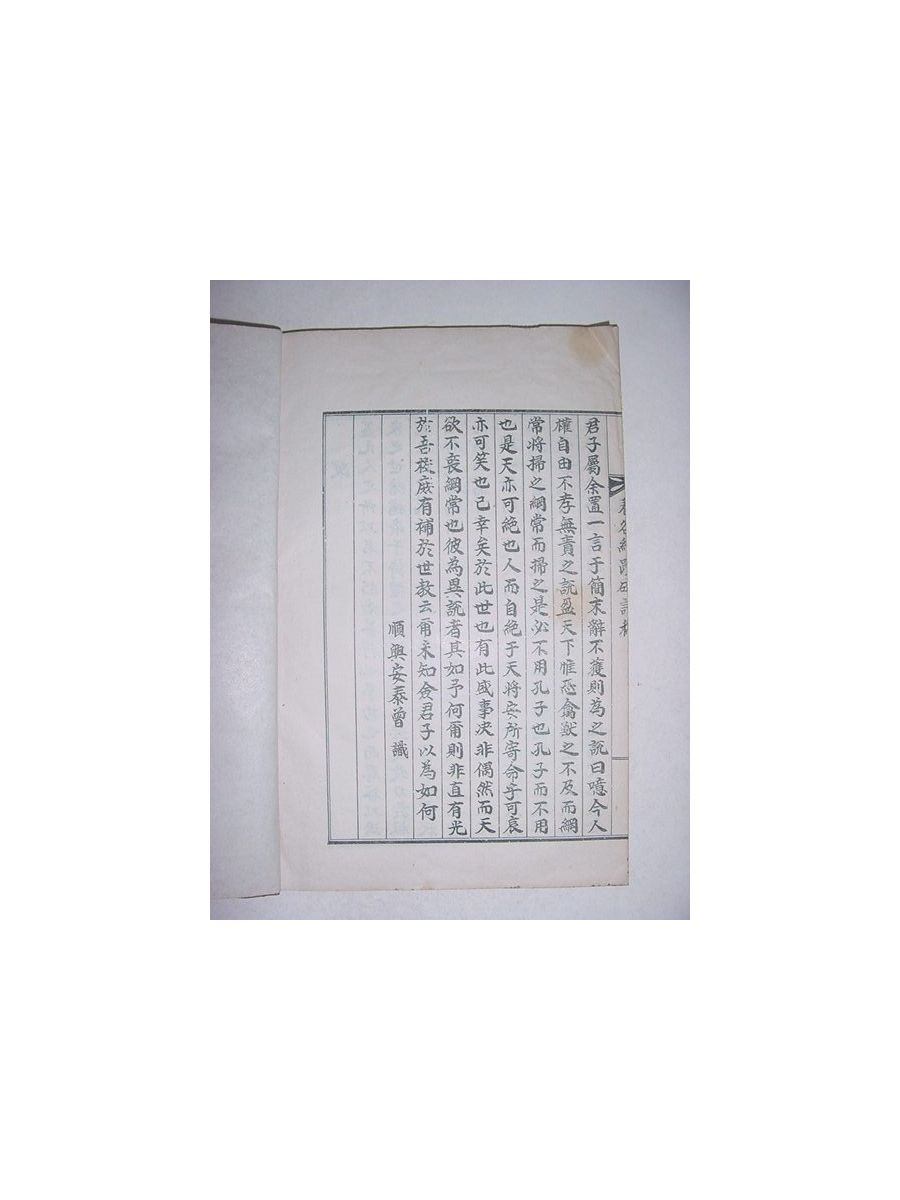 君子屬余置一言于簡末辭不獲則為之說曰噫今人
權自由不孝無責之說盈天下惟恐禽獸之不及而綱
常將掃之綱常而掃之是必不用孔子也孔子而不用
也是天亦可絶也人而自絶于天將安所寄命乎可哀
亦可笑也已幸矣於此世也有此盛事决非偶然而天
欲不喪綱常也彼為異說者其如予何爾則非直有光
於吾校庶有補於世教云爾未知僉君子以為如何
順興安泰曾 識